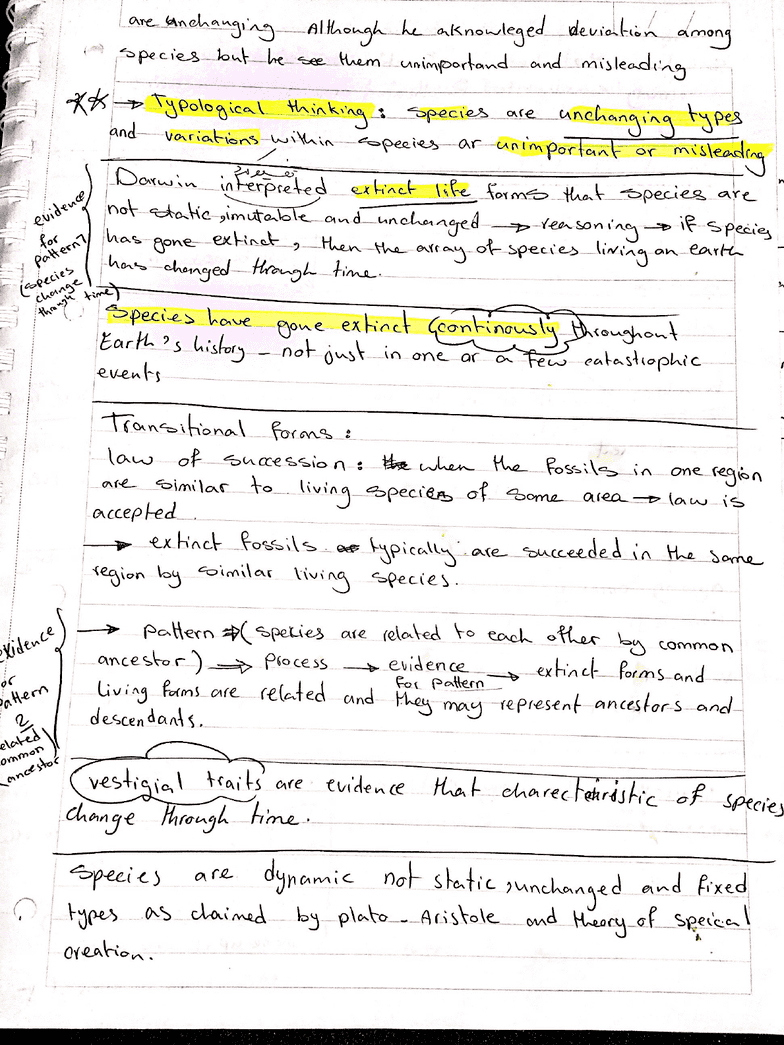 are unchanging Although he aknowleged deviation among
species but he see them unimportand and misleading
→ Typological thinking : species are unchanging types
and variations within species ar unimportant or misleading
Darwin interpreted extinct life forms that species are
not static, imutable and unchanged → reasoning → if species
has gone extinct, then the array of species living on earth
has changed through time.
evidence
for
pattern 1
(species
change
through time)
Species have gone extinct (continously) throughout
Earth's history - not just in one or a few catastrophic
events
Transitional forms :
law of succession : when the fossils in one region
are similar to living species of same area → law is
accepted
→ extinct fossils typically are succeeded in the same
region by similar living species.
→ pattern ⇒ (species are related to each other by common
ancestor) ⇒ Process → evidence → extinct forms and
for pattern
living forms are related and they may represent ancestors and
descendants.
evidence
for
pattern
2
related
common
ancestor
vestigial traits are evidence that charecteristic of species
change through time.
Species are dynamic not static, unchanged and fixed
types as claimed by plato - Aristole and theory of speical
creation.